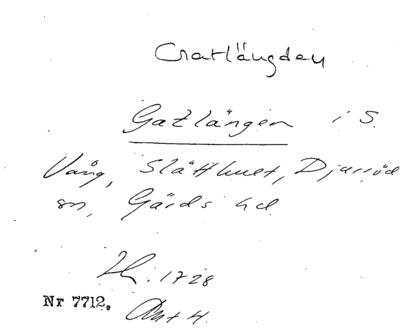 Gatlängden
Gatlängen i S.
Vång, Slätthult, Djurröd
sn, Gärds hd
1728
Nr 7712. Akt 4.